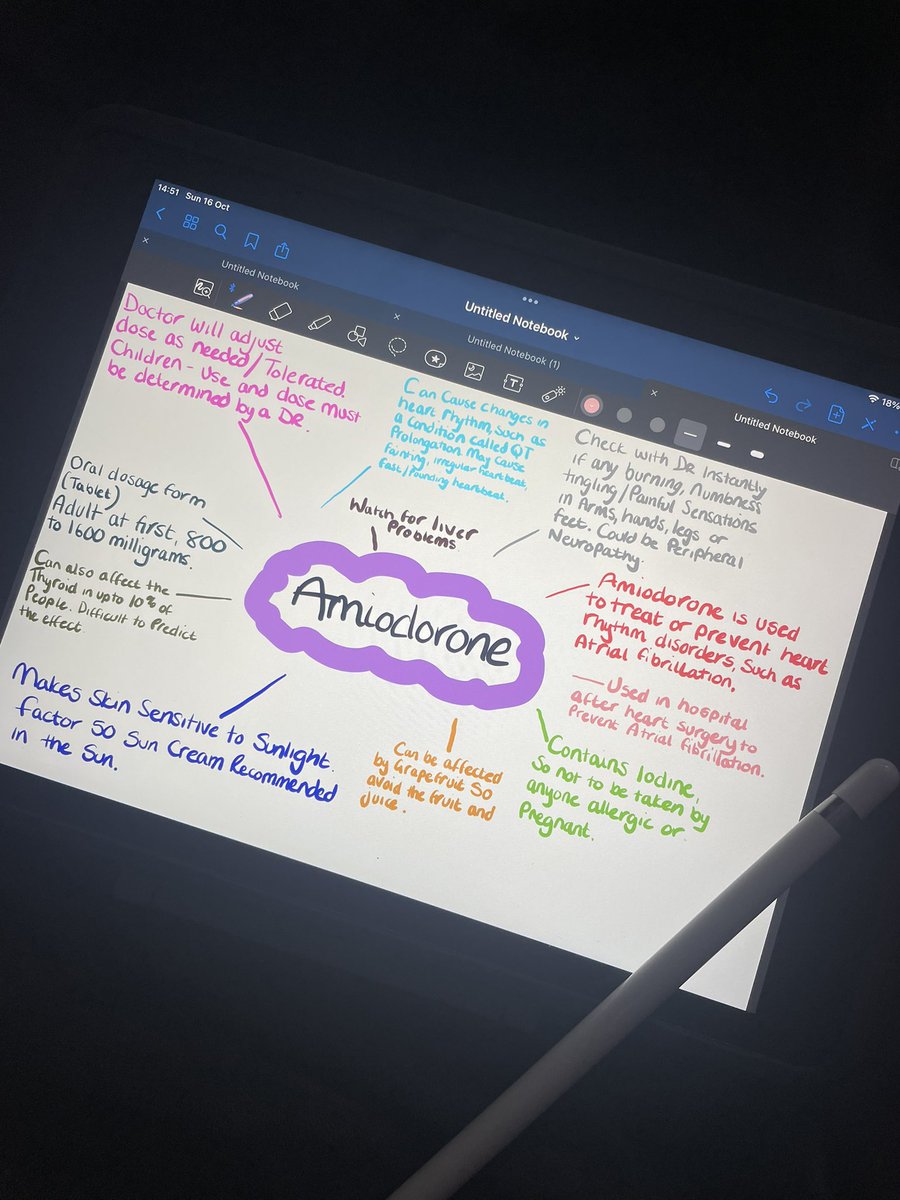 14:51 Sun 16 Oct
18%
Untitled Notebook
Untitled Notebook
Untitled Notebook (1)
Untitled Notebook
Doctor will adjust
dose as needed/Tolerated.
Children - Use and dose must
be determined by a DR.
Can Cause changes in
heart rhythm, such as
a Condition called QT
Prolongation. May cause
fainting, irregular heartbeat,
fast/Pounding heartbeat.
Check with Dr Instantly
if any burning, Numbness
tingling/Painful Sensations
in Arms, hands, legs or
feet. Could be Peripheral
Neuropathy.
Oral dosage form
(Tablet)
Adult at first, 800
to 1600 milligrams.
Watch for liver
Problems
Can also affect the
Thyroid in upto 10% of
People. Difficult to Predict
the effect
Amiodorone
Amiodorone is used
to treat or prevent heart
rhythm disorders, Such as
Atrial fibrillation.
— Used in hospital
after heart surgery to
Prevent Atrial fibrillation.
Makes Skin Sensitive to Sunlight.
factor 50 Sun Cream Recommended
in the Sun.
Can be affected
by Grapefruit So
avoid the fruit and
Juice.
Contains Iodine,
So not to be taken by
anyone allergic or
Pregnant.